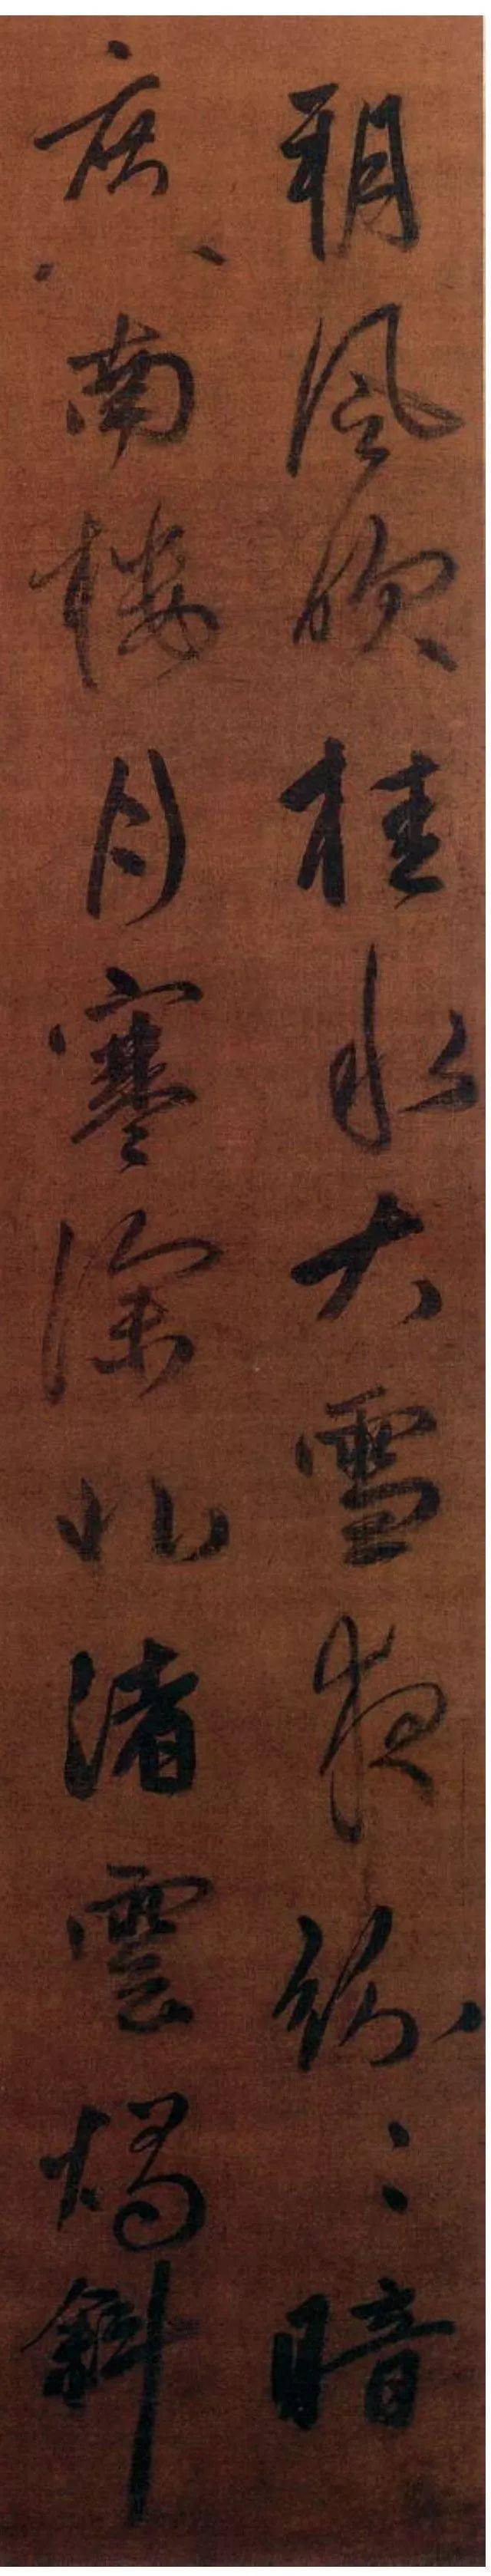 朔風吹桂水大雪夜紛〻暗
度南樓月寒深北渚雲燭斜